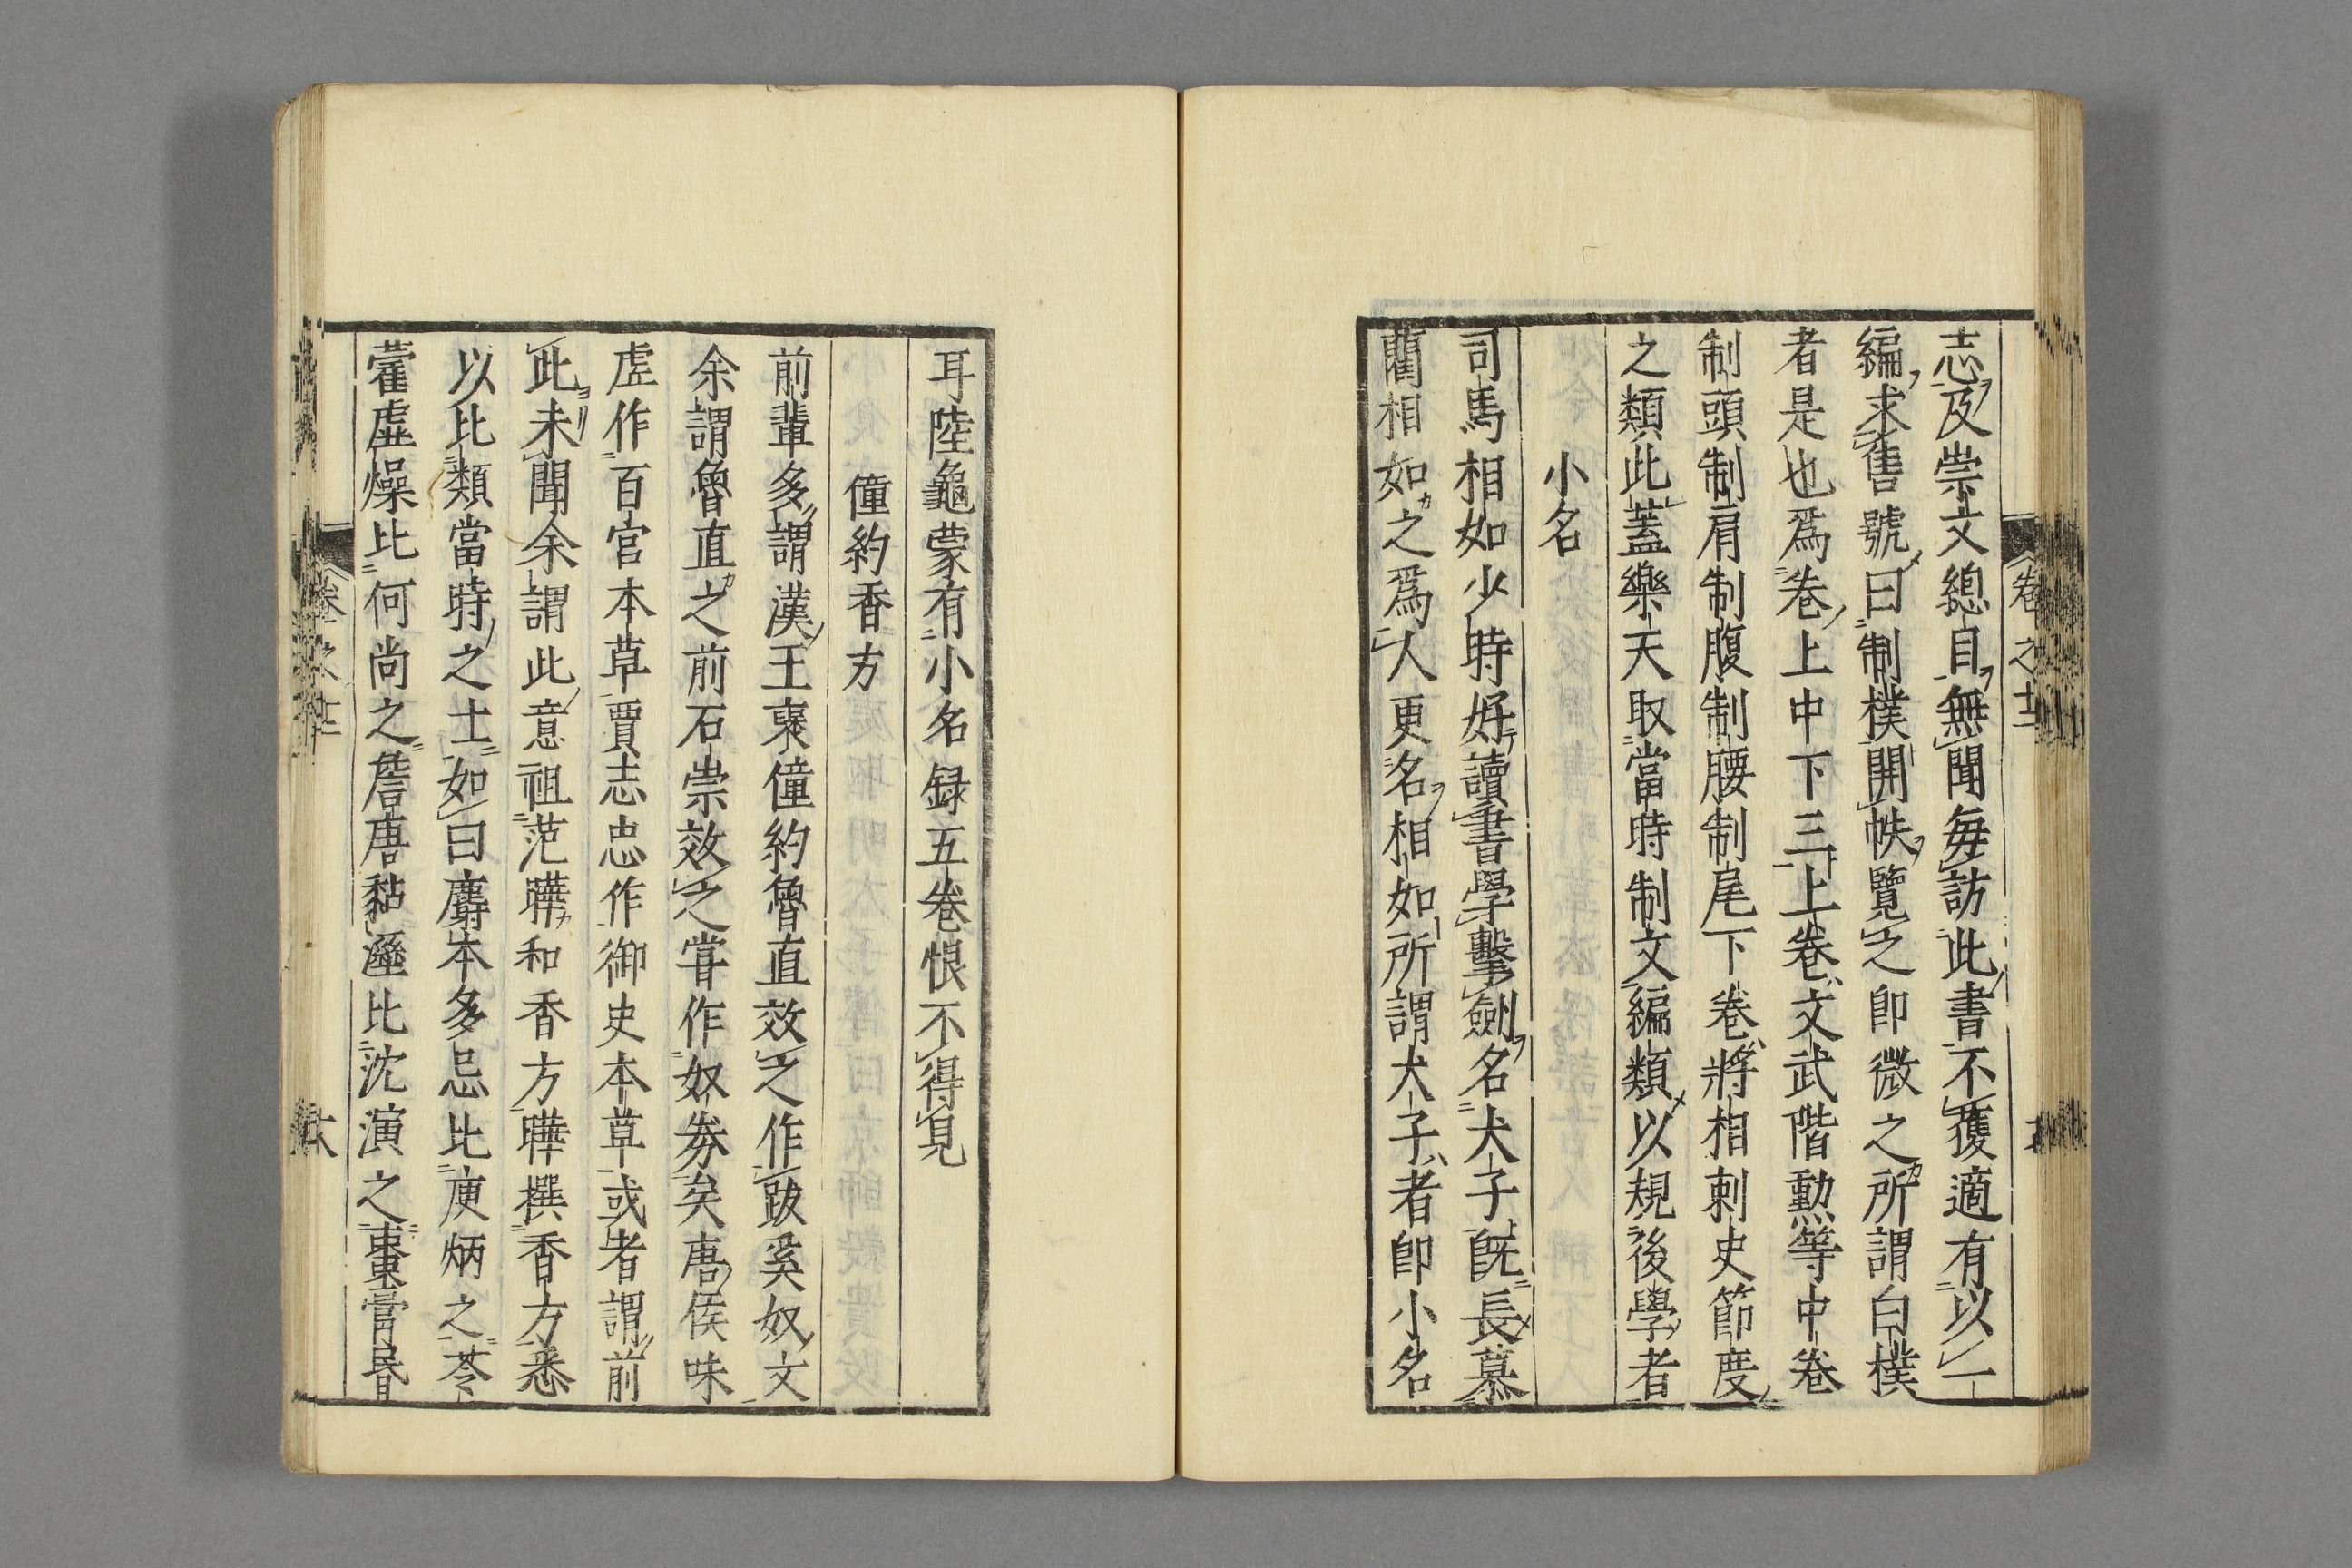 志及崇文總目無聞毎訪此書不獲適有以一
編求售號曰制樸開帙覽之卽微之所謂白樸
者是也爲卷上中下三上卷文武階勳等中卷
制頭制肩制腹制腰制尾下卷將相刺史節度
之類此蓋樂天取當時制文編類以規後學者
小名
司馬相如少時好讀書學擊劍名犬子旣長慕
藺相如之爲人更名相如所謂犬子者卽小名
卷之十三
耳陸龜蒙有小名録五卷恨不得見
僮約香方
前輩多謂漢王襃僮約魯直效之作跋奚奴文
余謂魯直之前石崇效之甞作奴劵矣唐侯味
虚作百官本草賈志忠作御史本草或者謂前
此未聞余謂此意祖范曄和香方曄撰香方悉
以比類當時之士如曰麝本多忌比庾炳之苓
藿虚燥比何尚之詹唐黏溼比沈演之棗膏昬
卷之十三
六